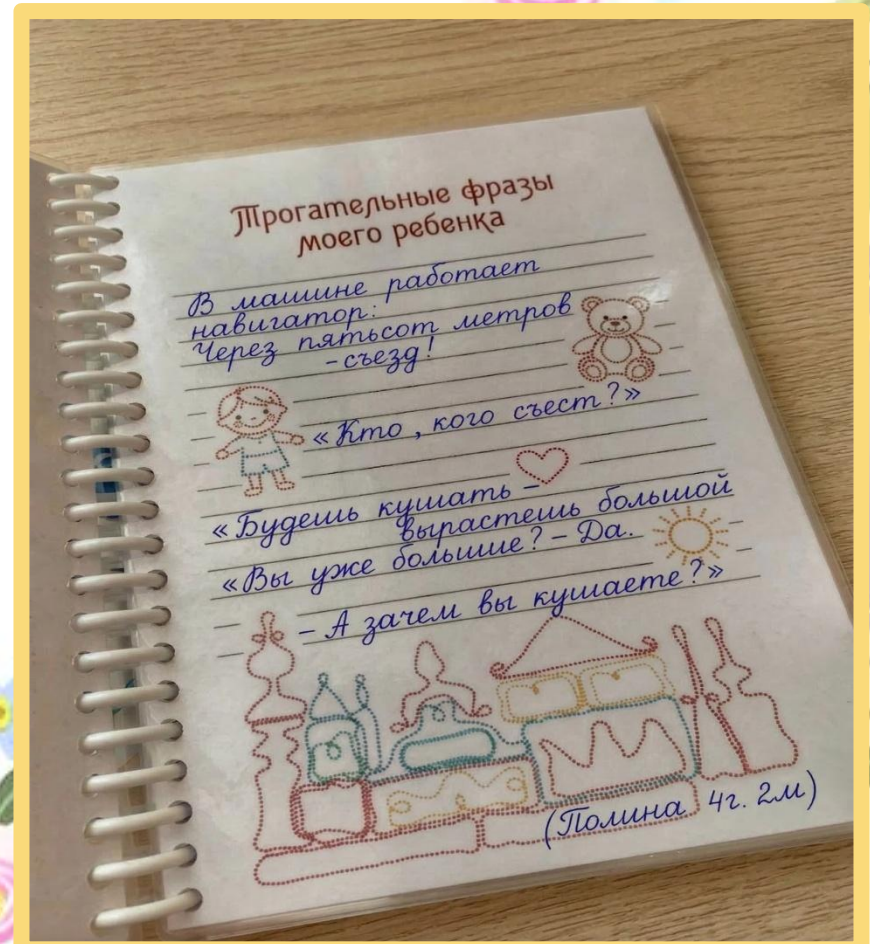 Трогательные фразы
моего ребенка
В машине работает
навигатор:
Через пятьсот метров
-съезд!
«Кто, кого съест?»
«Будешь кушать –
вырастешь большой
«Вы уже большие? – Да.
– А зачем вы кушаете?»
(Полина 4г. 2м)